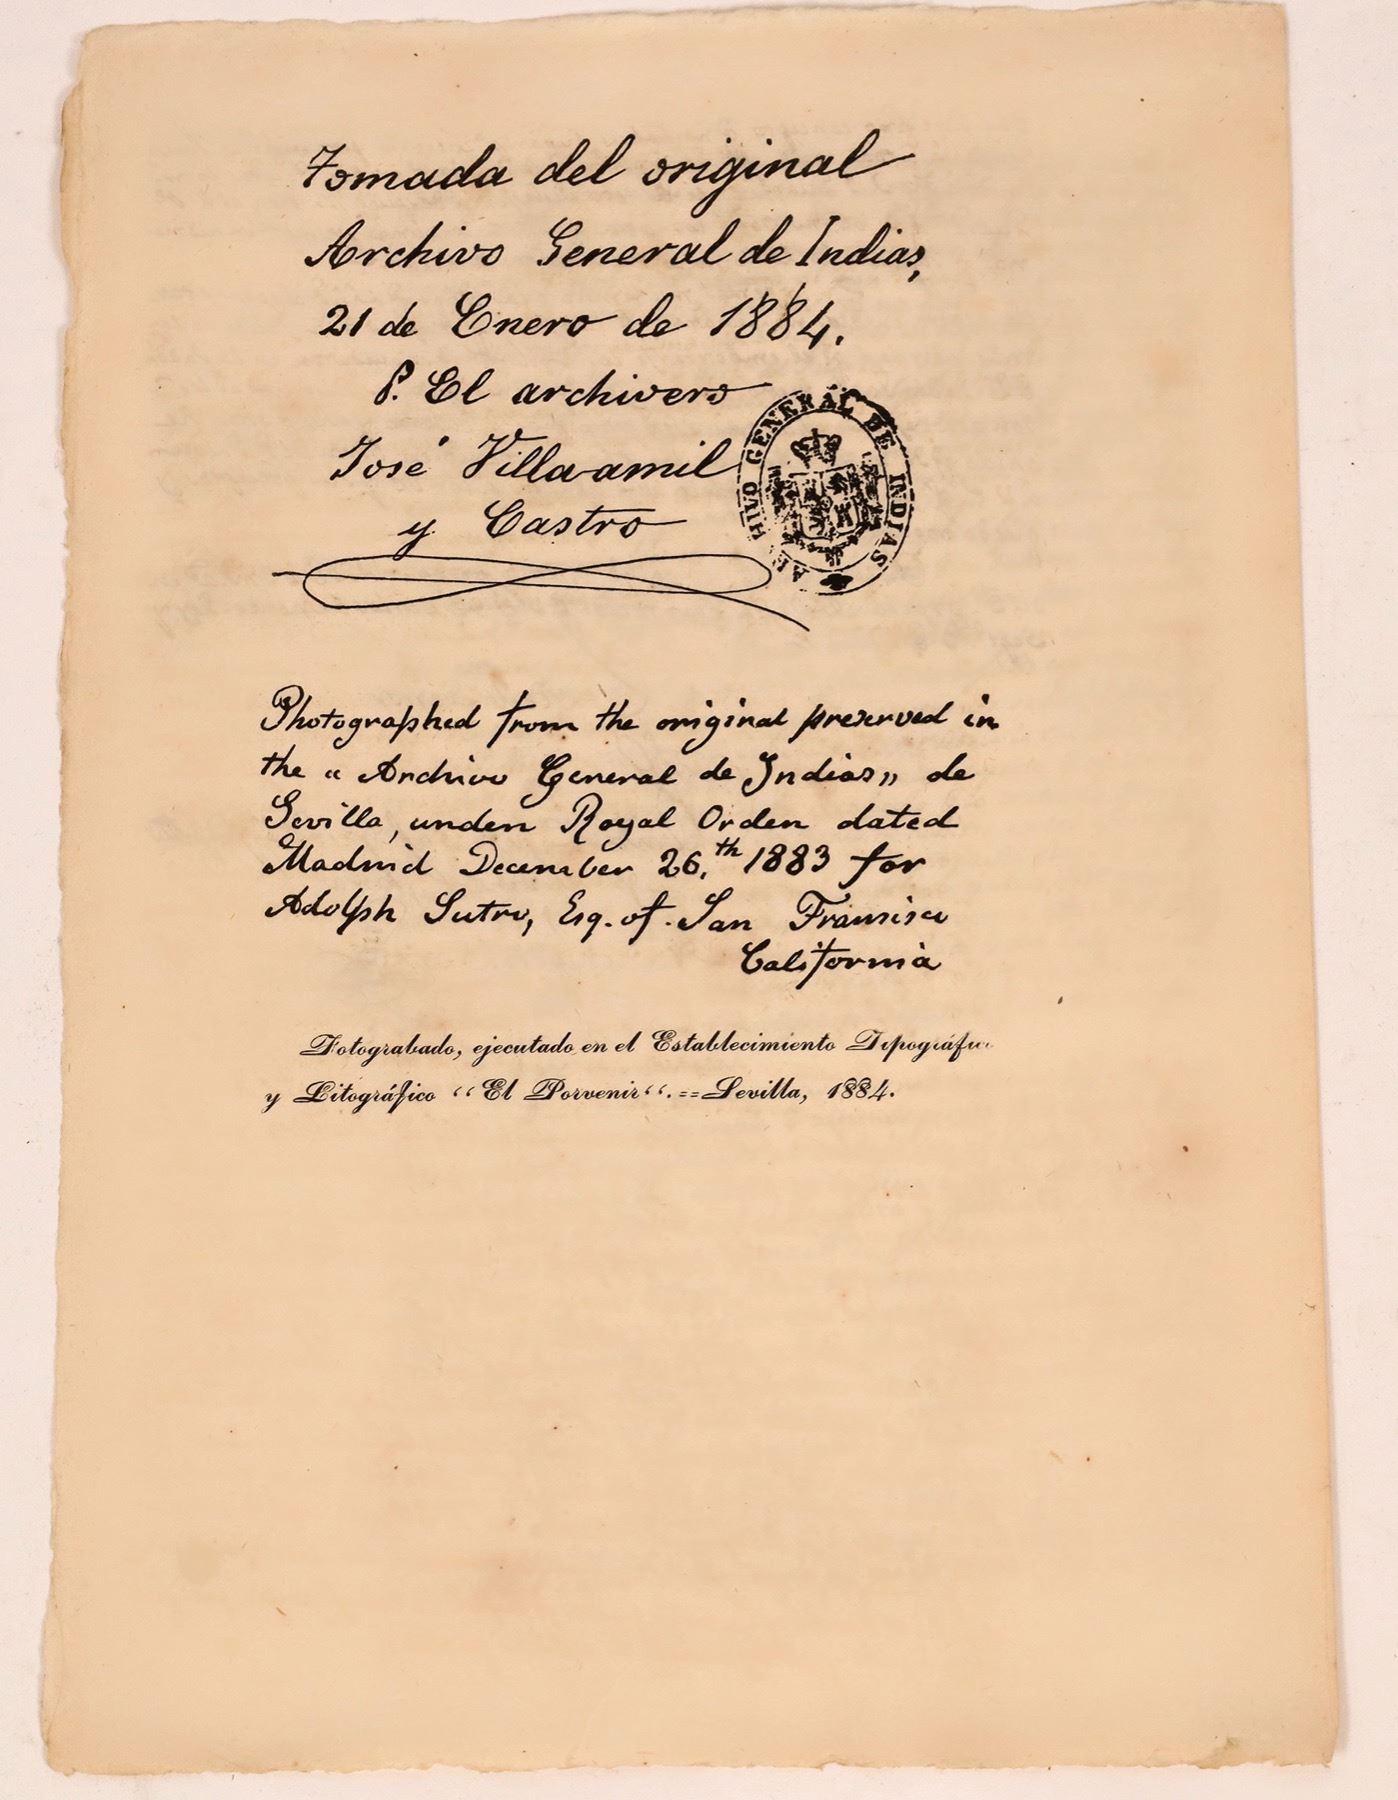 Tomada del original
Archivo General de Indias,
21 de Enero de 1884.
P. El archivero
José Villa-amil
y Castro
ARCHIVO GENERAL DE INDIAS
Photographed from the original preserved in
the « Archivo General de Indias» de
Sevilla, under Royal Order dated
Madrid December 26.th 1883 for
Adolph Sutro, Esq. of San Francisco
California
Fotograbado, ejecutado en el Establecimiento Tipográfico
y Litográfico “El Porvenir“.==Sevilla, 1884.